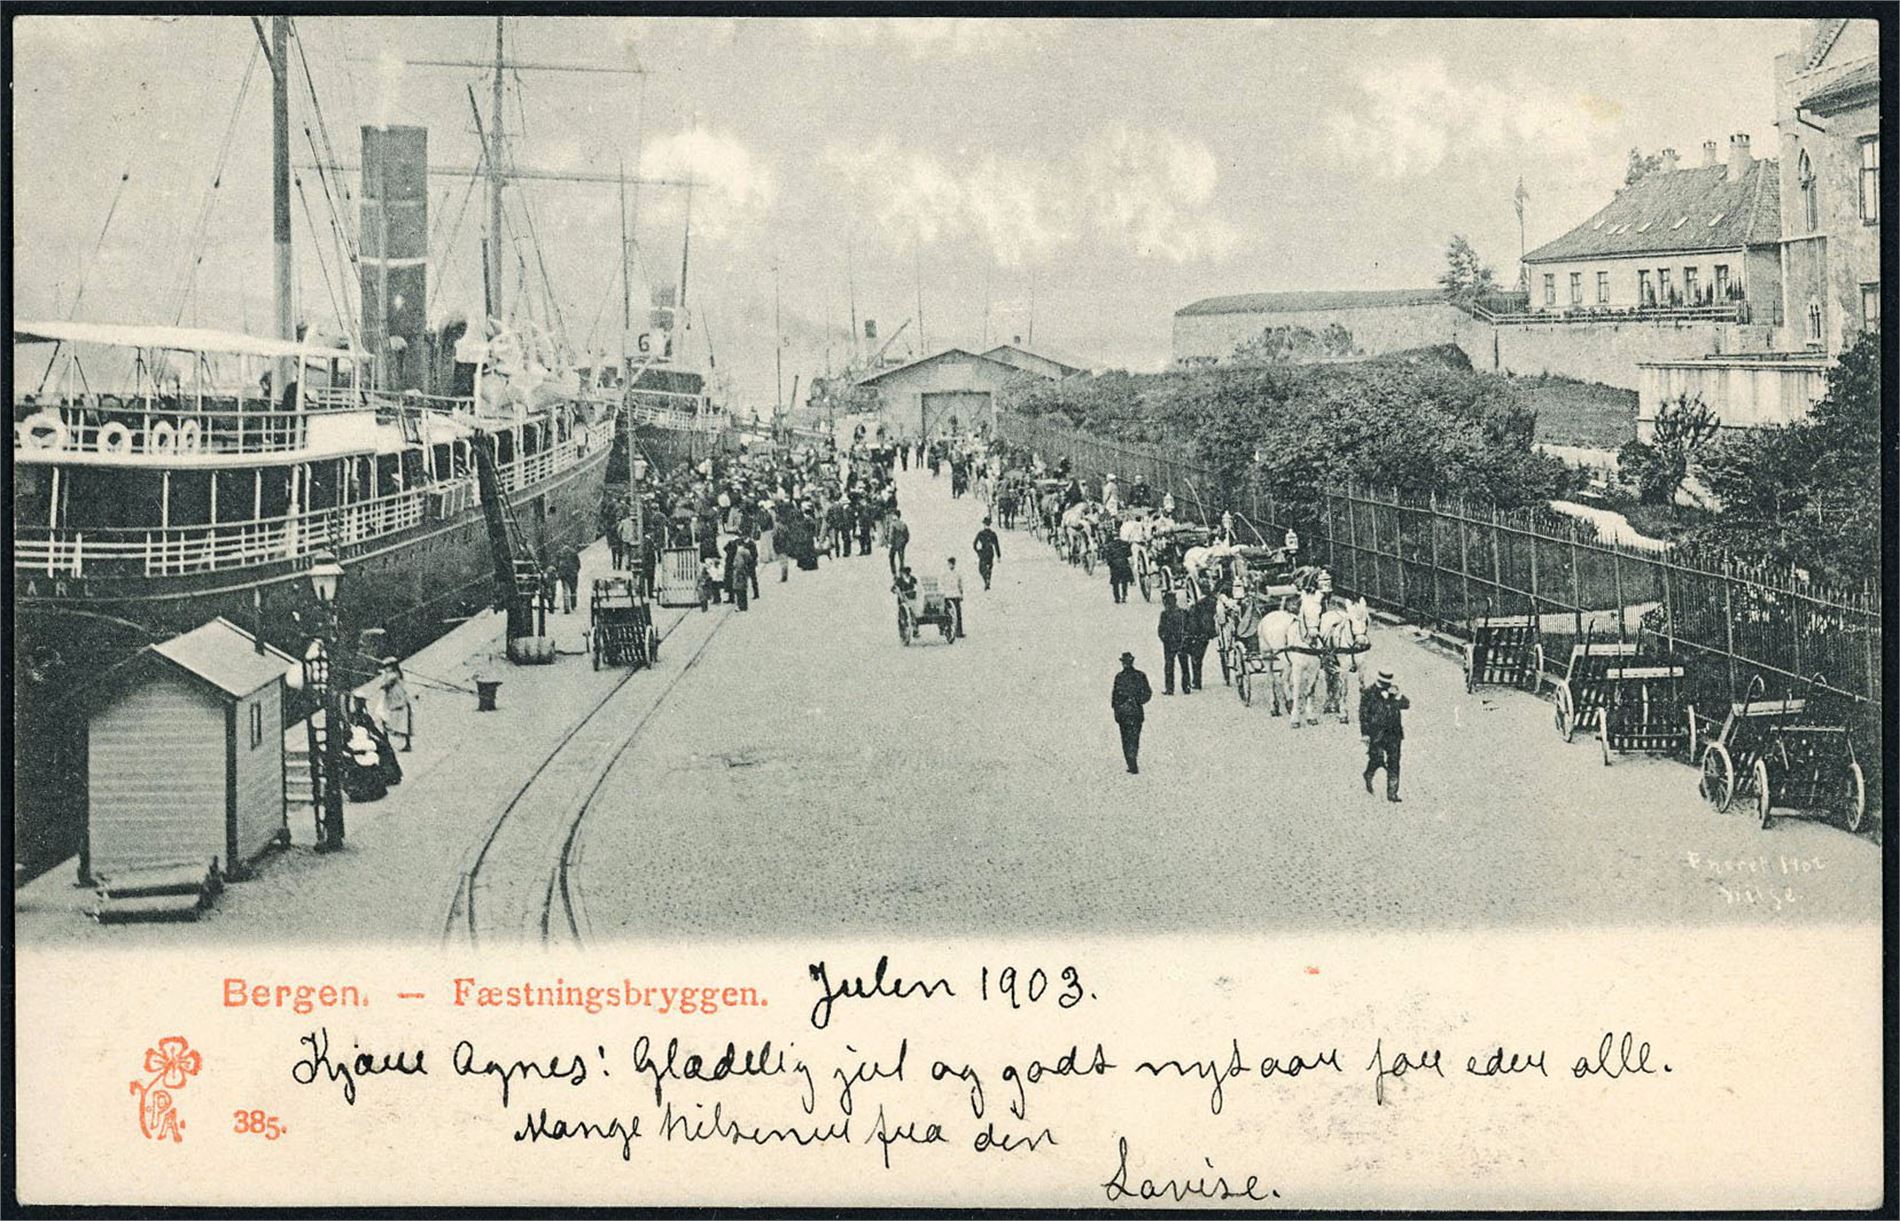 6
ARL
Eneret
Bergen. — Fæstningsbryggen. Julen 1903.
Kjære Agnes! Glædelig jul og godt nytaar for eder alle.
Mange hilsener fra din
Lovise.
PA.
385.